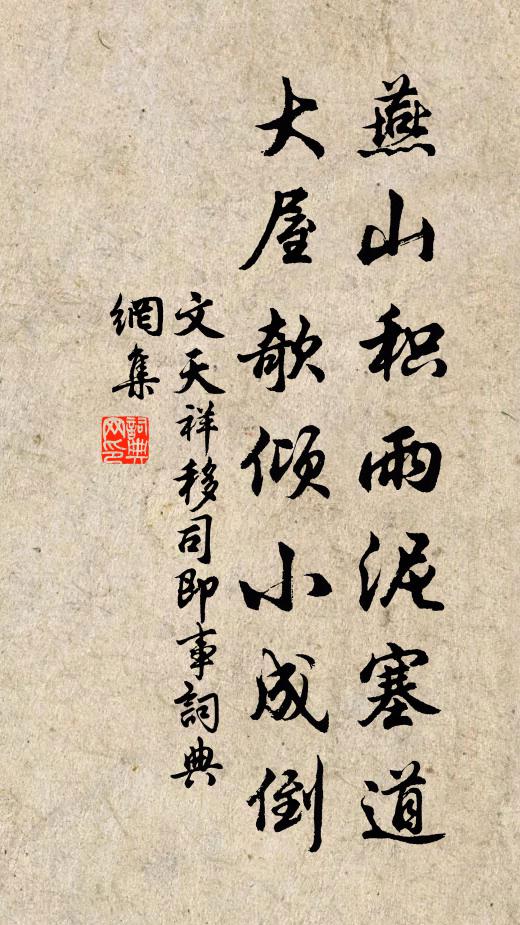 燕山积雨泥塞道
大屋欹倾小成倒
文天祥移司即事詞典
網集
詞典网印